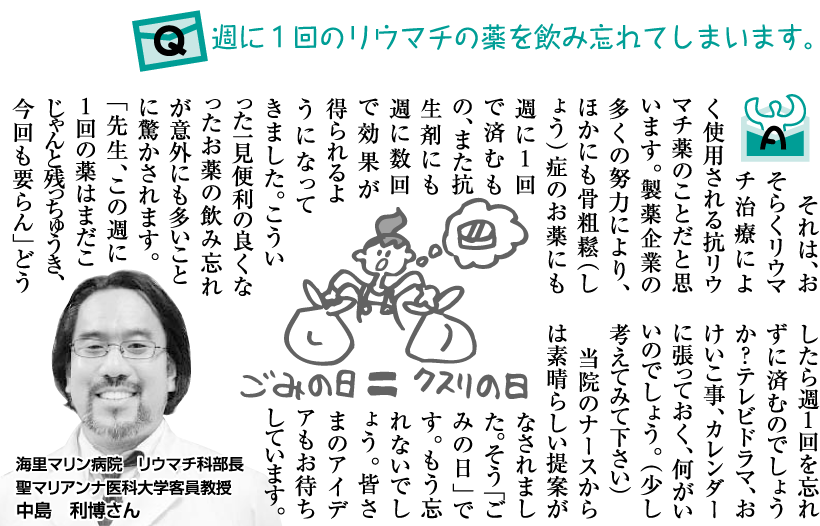 Q 週に1回のリウマチの薬を飲み忘れてしまいます。
A
それは、お
そらくリウマ
チ治療によ
く使用される抗リウ
マチ薬のことだと思
います。製薬企業の
多くの努力により、
ほかにも骨粗鬆（し
ょう）症のお薬にも
週に1回
で済むも
の、また抗
生剤にも
週に数回
で効果が
得られるよ
うになって
きました。こうい
った一見便利の良くな
ったお薬の飲み忘れ
が意外にも多いこと
に驚かされます。
「先生、この週に
1回の薬はまだこ
じゃんと残っちゅうき、
今回も要らん」どう
したら週1回を忘れ
ずに済むのでしょう
か？テレビドラマ、お
けいこ事、カレンダー
に張っておく、何がい
いのでしょう。（少し
考えてみて下さい）
当院のナースから
は素晴らしい提案が
なされまし
た。そう「ご
みの日」で
す。もう忘
れないでし
ょう。皆さ
まのアイデ
アもお待ち
しています。
ごみの日＝クスリの日
海里マリン病院　リウマチ科部長
聖マリアンナ医科大学客員教授
中島　利博さん